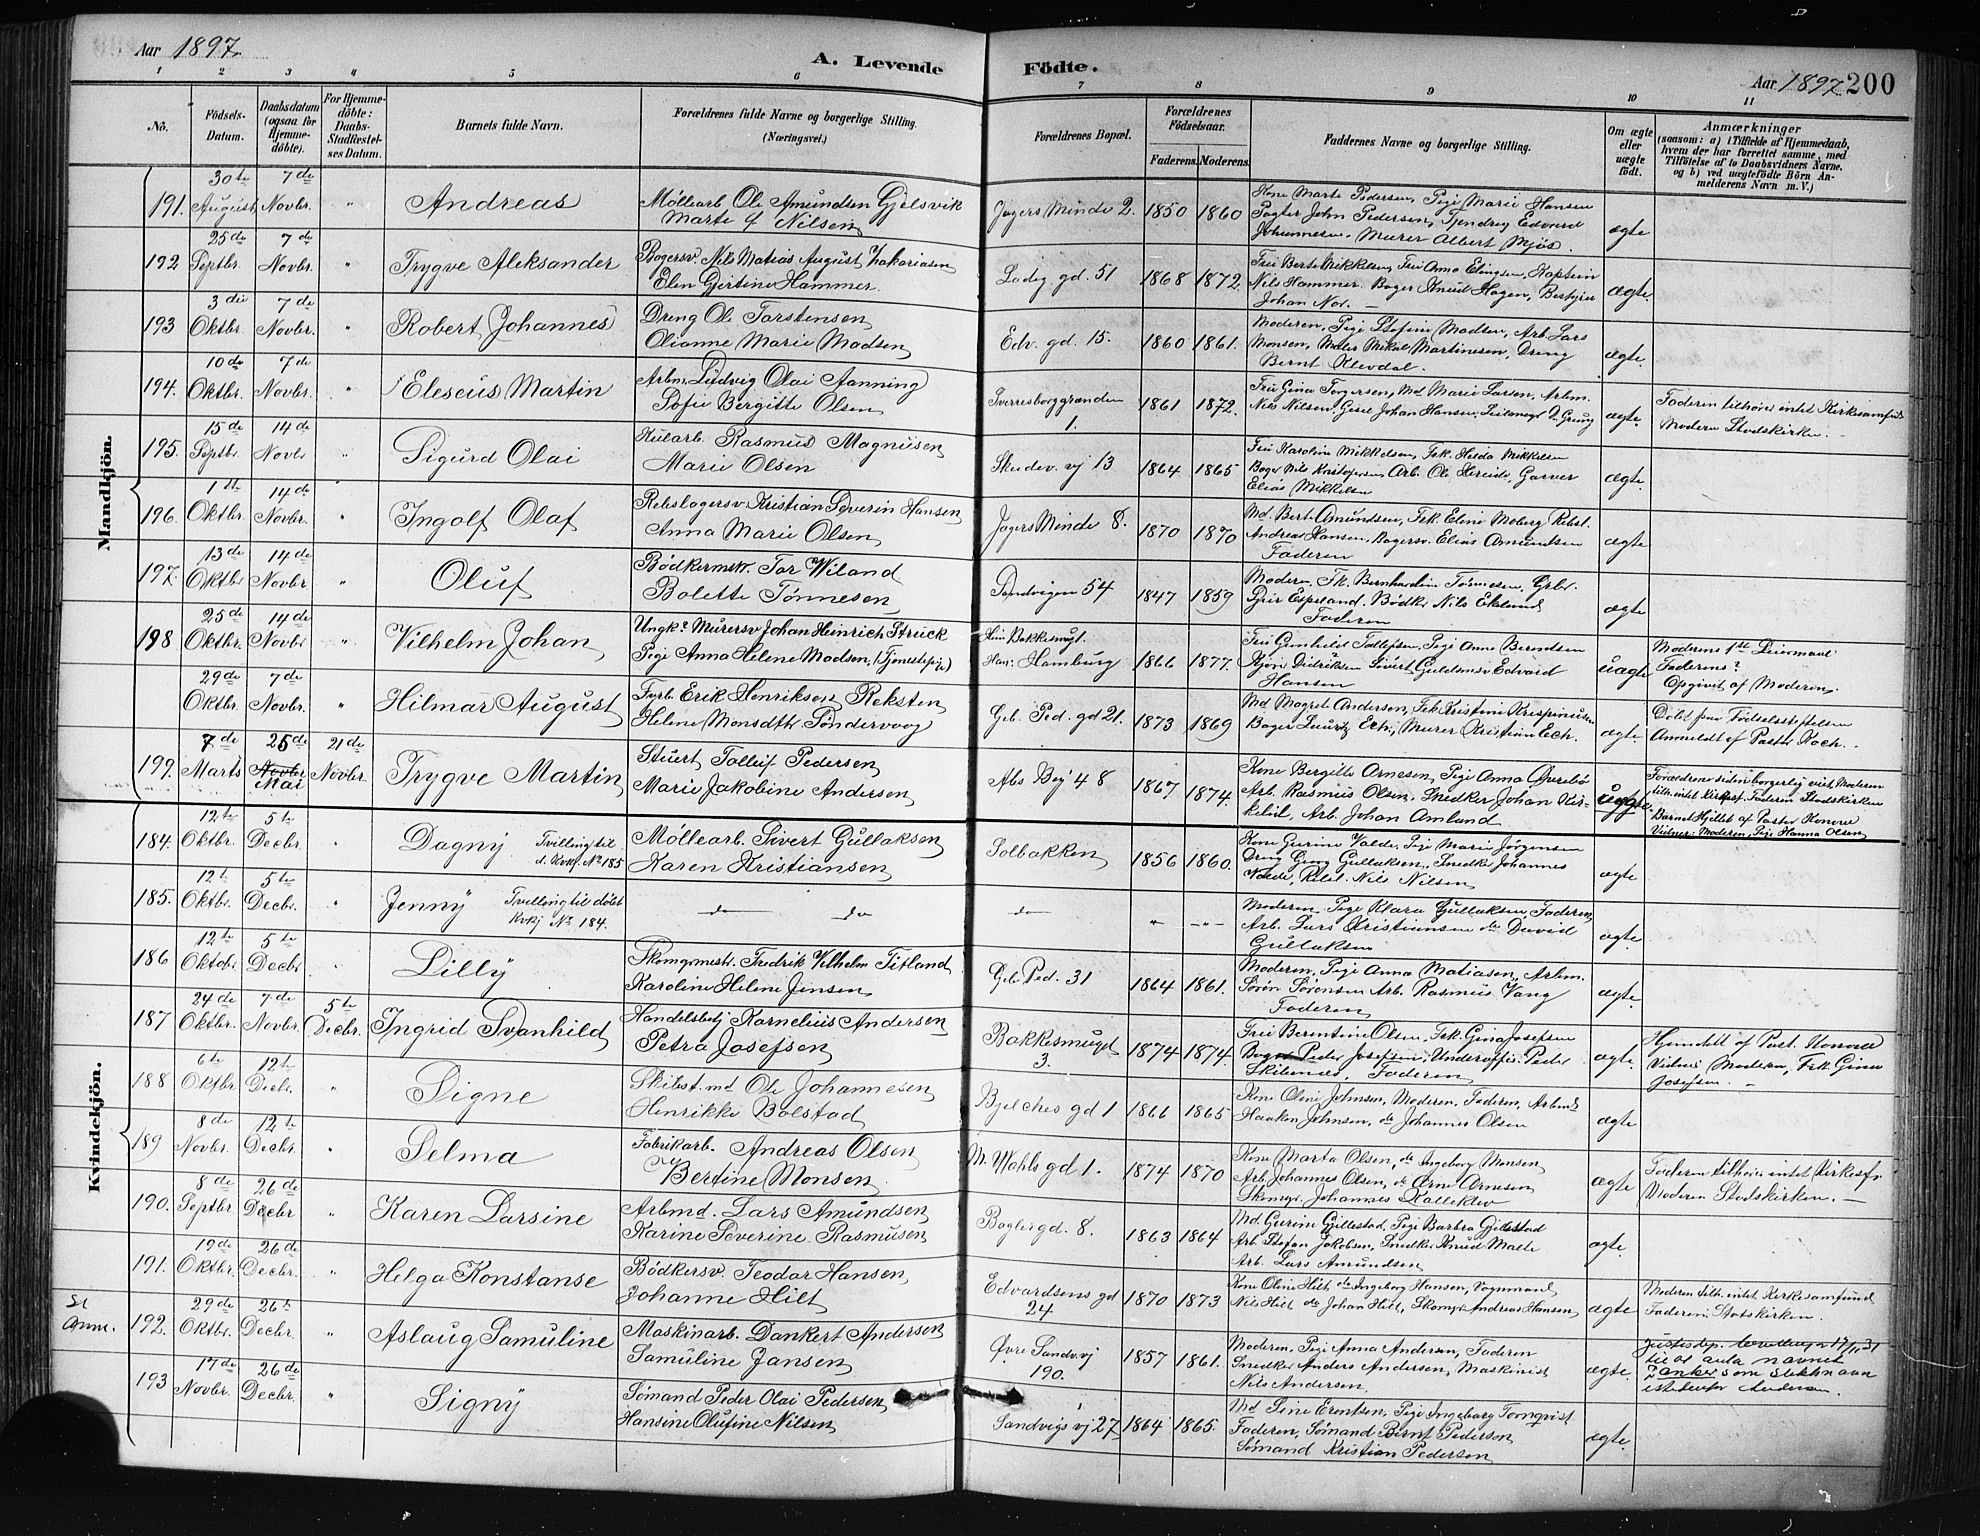 Aar 1897.
A. Levende Födte.
Aar 1897 200
1 2 3 4 5 6 7 8 9 10 11
No.
Födsels-Datum.
Daabsdatum (ogsaa for Hjemme-döbte).
For Hjemme-döbte: Daabs-Stadfæstel-ses Datum.
Barnets fulde Navn.
Forældrenes fulde Navne og borgerlige Stilling. (Næringsvei.)
Forældrenes Bopæl.
Forældrenes Födselsaar.
Faderens. Moderens.
Faddernes Navne og borgerlige Stilling.
Om ægte eller uægte födt.
Anmærkninger
(saasom: a) i Tilfælde af Hjemmedaab,
hvem der har forrettet samme, med
Tilföielse af to Daabsvidners Navne,
og b) ved uægtefödte Börn An-
melderens Navn m. V.)
Mandkjön.
191. 30te August 7de Novbr. " Andreas
Møllearb. Ole Amundsen Gjelsvik
Marte f Nilsen
Jagers Minde 2. 1850 1860
Kone Marte Pedersen, Pige Marie Hansen
John Pedersen, Edvard
Johannesen. Murer Albert Mjøs.
ægte
192 25de Septbr. 7de Novbr. " Trygve Aleksander
Bogersv. Nils Matias August Zakariasen
Elen Gjertine Hammer.
gd. 51 1868 1872.
Fru Berte Mikkelsen, Fru Anna Elingsen, Kaptein
Nils Hammer. Bager Knud Hagen,
Johan Nor. —
ægte.
193 3die Oktbr. 7de Novbr. " Robert Johannes
Dreng Ole Torstensen
Olianne Marie Madsen
Edv. gd. 15. 1860 1861.
Moderen, Pige Stefine Madsen, Arb. Lars
Monsen, Maler Mikal Martinesen, Dreng
Bernt Klevdal.
ægte.
194. 10de Oktbr. 7de Novbr. " Eleseus Martin
Arbm. Ludvig Olai Aanning
Sofie Bergitte Olsen
Sverresborggrænden 1. 1861 1872.
Fru Gina Torgersen, Md. Marie Larsen, Arbm.
Nils Nilsen, Gesel Johan Hansen,
ægte.
Faderen tilhører intet Kirkesamfund
Modern Statskirken. -
195. 15de Septbr. 14de Novbr. Sigurd Olai
Kularb. Rasmus Magnusen
Marie Olsen
Skudev. vj 13 1864 1865
Fru Karoline Mikkelsen, Frk. Helda Mikkelsen
Bager Nils Kristofersen, Arb. Ole Hereide, Garver
Elias Mikkelsen
ægte.
196. 1ste Oktbr. 14de Novbr. " Ingolf Olaf
Rebslagersv. Kristian Severin Hansen
Anna Marie Olsen
Jagers Minde 8. 1870 1870
Md. Berte Amundsen, Frk. Eline Moberg Rebsl.
Andreas Hansen, Bagersv. Elias Amundsen
Faderen
ægte
197. 13de Oktbr 14de Novbr. " Oluf
Bödkermstr. Tor Wiland
Bolette Tönnesen
Sandvigen 54 1847 1859
Moderen, Fk. Bernhardine Tönnesen, Gbr.
Espeland. Bödker Nils Eklund
Faderen
ægte
198 25de Oktbr. 14de Novbr. " Vilhelm Johan
Ungk. Murersv Johan Heinrich Struck
Pige Anna Helene Madsen, (Tjenestepige)
Hun: Bakkesmugt.
Han: Hamburg 1866 1877.
Fru Gunhild Tollefsen, Pige Anne Berentsen
Didriksen Guldsmsv Edvard
Hansen
uægte
Moderens 1ste Leiermaal
Faderens?
Opgivet af Moderen.
29de Oktbr. 7de Novbr. " Hilmar August
Fyrb. Erik Henriksen Reksten
Helene Monsdtr. Söndervaag
Geb. Ped. gd 21. 1873 1869
Md Magret Andersen, Frk Kristine Krispinusen
Bager Eek, Murer Kristian Eek.
ægte
Døbt paa Fødselsstiftelsen
Anmeldt af Pastor Koch. -
199. 7de Marts 25de Novbr. Mai 21de Novbr. Trygve Martin
Stuert Tollef Pedersen
Marie Jakobine Andersen
Abs Vej 48 1867 1874.
Kone Bergitte Arnesen, Pige Anna Øvrebø
Arb. Rasmus Olsen. Snedker Johan Kir-
kelid, Arb. Johan Amland
uægte.
Forældrene siden borgerlig viet. Moderen
tilh. intet Kirkesf. Faderen Statskirken
Barnet Hjdöbt af Pastor Konow
Vidner: Moderen, Pige Hanna Olsen
Kvindekjön.
184. 12te Oktbr. 5te Decbr. Dagny Tvilling til d. Kvkj. No 185
Møllearb. Sivert Gullaksen
Karen Kristiansen
Solbakken 1856 1860.
Kone Gurine Valde. Pige Marie Jørgensen
Dreng Georg Gullaksen, Snedker Johannes
Valde, Rebsl. Nils Nilsen
ægte
185. 12te Oktbr. 5te Decbr. " Jenny Tvilling til døbt Kvkj No 184.
do do do " - " -
Moderen, Pige Klara Gullaksen, Faderen
Arb. Lars Kristiansen do David
Gullaksen
ægte
186 12te Oktobr. 5te Decbr. " Lilly
Skomgrmestr. Fredrik Vilhelm Titland
Karoline Helene Jensen
Geb Ped. 31 1864 1861.
Moderen, Pige Anna Matiasen, Arbm.
Sørøn Sørensen Arb. Rasmus Vang
Faderen
ægte
187 24de Oktbr. 7de Novbr. 5te Decbr. Ingrid Svanhild
Handelsbetj Kornelius Andersen
Petra Josefsen
Bakkesmuget 3. 1874 1874.
Frue Berentine Olsen, Frk. Gina Josefsen
Peder Josefsen, Underoffis. Peder
Faderen
ægte.
Hjemdøbt af Past. Konow
Vidner Moderen, Frk. Gina
Josefsen. -
188 6te Oktbr. 12te Decbr. " Signe
Skibst.md Ole Johannesen
Henrikke Bolstad
gd 1 1866 1865
Kone Oline Johnsen, Moderen. Faderen, Arbmd.
Haaken Johnsen, do Johannes Olsen
ægte
189 8de Novbr. 12te Decbr. " Selma
Fabrikarb. Andreas Olsen
Bertine Monsen
M. Wahls gd 1. 1874 1870
Kone Marta Olsen, do Ingeborg Monsen
Arb Johannes Olsen, do Arne Arnesen
Skomgr. Johannes Kalleklev
ægte
Faderen tilhører intet Kirkesf.
Moderen Statskirken. -
190. 8de Septbr 26de Decbr " Karen Larsine
Arbmd. Lars Amundsen
Karine Severine Rasmusen
Baglergd. 8. 1863 1864
Md Gurine Gjillestad, Pige Barbra Gjillestad
Arb Stefan Jakobsen, Snedker Knud Malte
Arb. Lars Amundsen
ægte
191. 19de Oktbr. 26de Decbr. " Helga Konstanse
Bödkersv. Teodor Hansen
Johanne Hilt
Edvardsens gd 24 1870 1873
Kone Oline Hilt do Ingeborg Hansen, Vognmand
Nils Hilt do Johan Hilt, Skomgr Andreas Hansen
ægte
Moderen tilh. intet Kirkesamfund
Faderen Statskirken.
Anm. 192. 29de Oktbr. 26te Decbr. " Aslaug Samuline
Maskinarb. Dankert Andersen
Samuline Jansen
Øvre Sandv. vj 190. 1857 1861.
Moderen, Pige Anna Andersen, Faderen
Snedker Anders Andersen, Maskinist
Nils Andersen
ægte
Justisdep. bevilling 17/11 31
til at anta navnet
som slektnavn
istedenfor Andersen.
193 17de Novbr. 26de Decbr. " Signy
Sømand Peder Olai Pedersen
Hansine Olufine Nilsen
Sandvigs vj 27 1864 1865.
Md Sine Erentsen, Pige Ingeborg Tornqvist
Faderen, Sømand Bernt Pedersen
Sømand Kristian Pedersen
ægte.